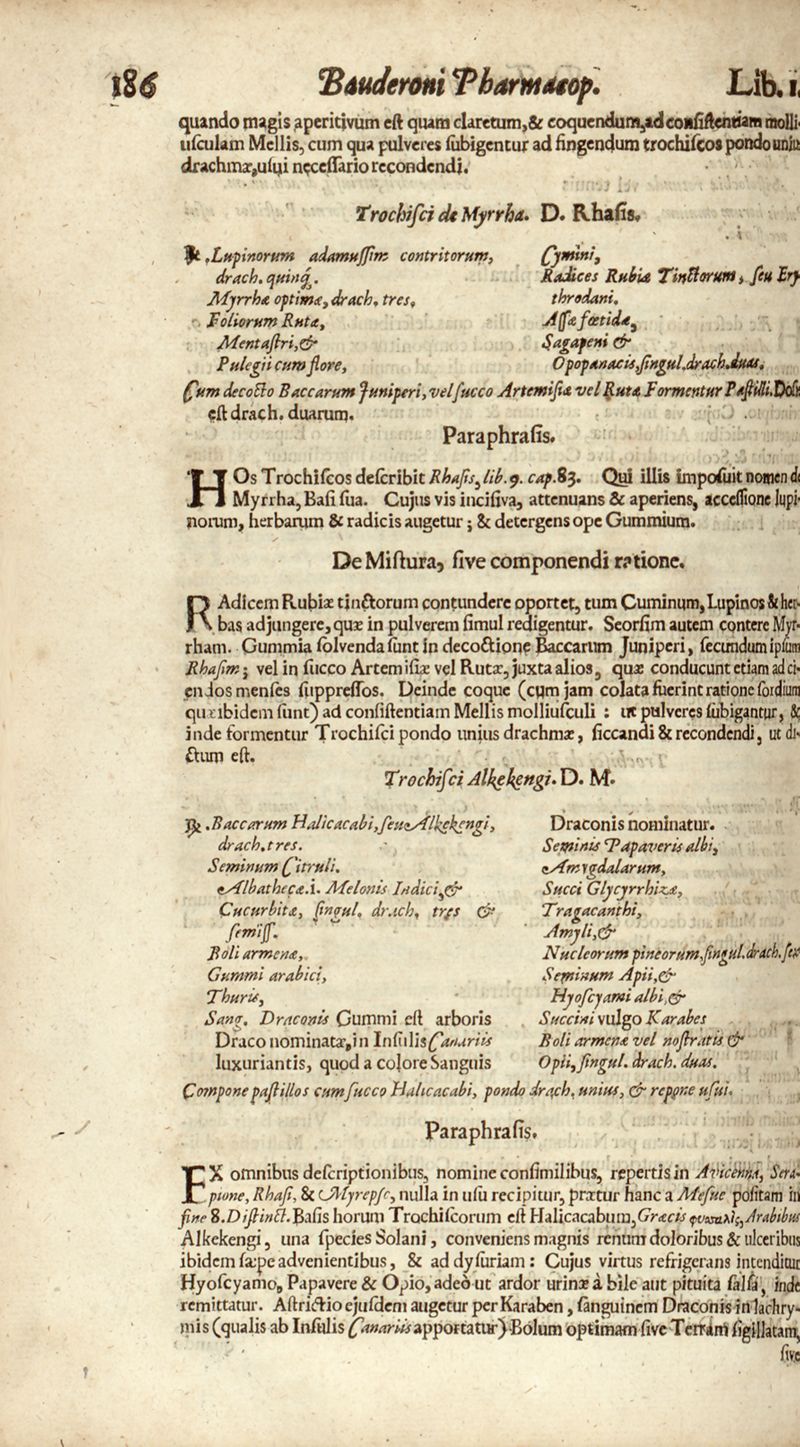 186 Bauderoni Pharmacop. Lib. 1.
quando magis aperitivum est quam claretum, & coquendum, ad consistentiam molli-
usculam Mellis, cum qua pulveres subigentur ad fingendum trochiscos pondo unius
drachmæ, usui necessario recondendi.
Trochisci de Myrrha. D. Rhasis.
℞. Lupinorum adamussim contritorum,
drach. quinq;.
Myrrhæ optimæ, drach. tres,
Foliorum Rutæ,
Mentastri, &
Pulegii cum flore,
Cymini,
Radices Rubiæ Tinctorum, seu Ery
throdani.
Assæ fœtidæ,
Sagapeni &
Opopanacis, singul. drach. duas.
Cum decocto Baccarum Juniperi, vel succo Artemisiæ vel Rutæ Formentur Pastilli. Dosis
est drach. duarum.
Paraphrasis.
HOs Trochiscos describit Rhasis, lib. 9. cap. 83. Qui illis imposuit nomen de
Myrrha, Basi sua. Cujus vis incisiva, attenuans & aperiens, accessione lupi-
norum, herbarum & radicis augetur; & detergens ope Gummium.
De Mistura, sive componendi ratione.
RAdicem Rubiæ tinctorum contundere oportet, tum Cuminum, Lupinos & her-
bas adjungere, quæ in pulverem simul redigentur. Seorsim autem contere Myr-
rham. Gummia solvenda sunt in decoctione Baccarum Juniperi, secundum ipsum
Rhasim; vel in succo Artemisiæ vel Rutæ, juxta alios, quæ conducunt etiam ad ci-
endos menses suppressos. Deinde coque (cum jam colata fuerint ratione sordium
quæ ibidem sunt) ad consistentiam Mellis molliusculi : ut pulveres subigantur, &
inde formentur Trochisci pondo unius drachmæ, siccandi & recondendi, ut di-
ctum est.
Trochisci Alkekengi. D. M.
℞. Baccarum Halicacabi, seu Alkekengi,
drach. tres.
Seminum Citruli.
Albathecæ.i. Melonis Indici, &
Cucurbitæ, singul. drach. tres &
semiss.
Boli armenæ,
Gummi arabici,
Thuris,
Sang. Draconis Gummi est arboris
Draco nominatæ, in Insulis Canariis
luxuriantis, quod a colore Sanguis
Draconis nominatur.
Seminis Papaveris albi,
Amygdalarum,
Succi Glycyrrhizæ,
Tragacanthi,
Amyli, &
Nucleorum pineorum, singul. drach. sex
Seminum Apii, &
Hyoscyami albi, &
Succini vulgo Karabes
Boli armenæ vel nostratis &
Opii, singul. drach. duas.
Compone pastillos cum succo Halicacabi, pondo drach. unius, & repone usui.
Paraphrasis.
EX omnibus descriptionibus, nomine consimilibus, repertis in Avicenna, Sera-
pione, Rhasi, & Myrepso, nulla in usu recipitur, prætur hanc a Mesue positam in
fine 8. Distinct. Basis horum Trochiscorum est Halicacabum, Græcis φυσαλὶς, Arabibus
Alkekengi, una species Solani, conveniens magnis renum doloribus & ulceribus
ibidem sæpe advenientibus, & ad dysuriam : Cujus virtus refrigerans intenditur
Hyoscyamo, Papavere & Opio, adeò ut ardor urinæ à bile aut pituita salsa, inde
remittatur. Astrictio ejusdem augetur per Karaben, sanguinem Draconis in lachry-
mis (qualis ab Insulis Canariis apportatur) Bolum optimam sive Terram sigillatam,
sive